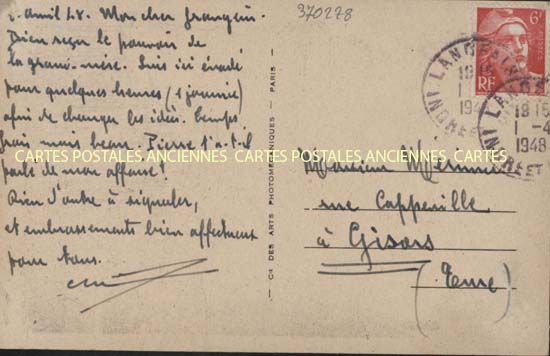 1 avril 48. Mon cher françois.
Bien reçu le pouvoir de
la grand-mère. Suis ici évadé
pour quelques heures (1 journée)
afin de changer les idées. Temps
frais mais beau. Pierre t'a-t-il
parlé de mon affaire?
Rien d'autre à signaler,
et embrassements bien affectueux
pour tous.
370278
CARTES POSTALES ANCIENNES CARTES POSTALES ANCIENNES CARTES POSTALES ANCIENNES
Cie DES ARTS PHOTOMÉCANIQUES — PARIS —
6F
RF
LANGEAIS
INDRE ET
1948
LANGEAIS
INDRE ET
18 15
1 -4
1948
Monsieur
rue Cappeville
à Gisors
(Eure)